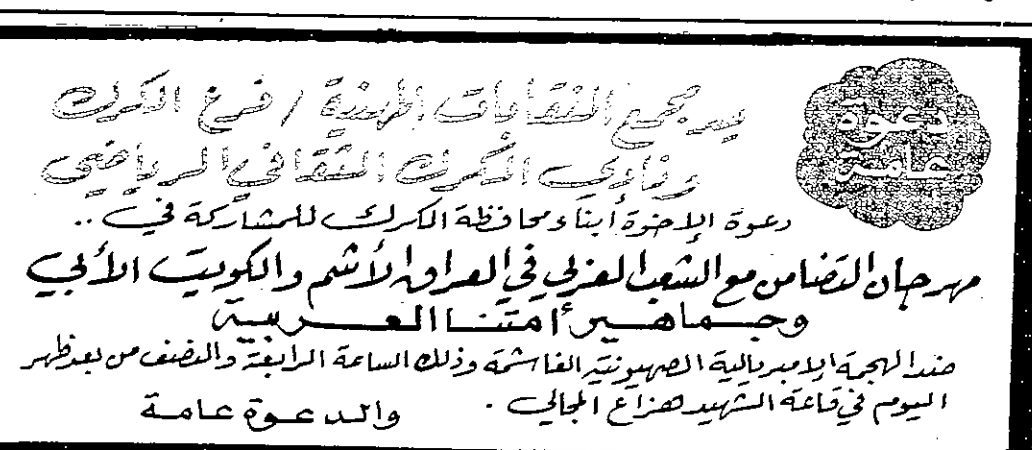 دعوة
عامة
يسر مجمع النقابات المهنية / فرع الكرك
ونادي الكرك الثقافي الرياضي
دعوة الإخوة أبناء محافظة الكرك للمشاركة في ..
مهرجان التضامن مع الشعب العربي في العراق الأشم والكويت الأبي
وجماهير أمتنا العربية
ضد الهجمة الإمبريالية الصهيونية الغاشمة وذلك الساعة الرابعة والنصف من بعد ظهر
اليوم في قاعة الشهيد هزاع المجالي .
والدعوة عامة